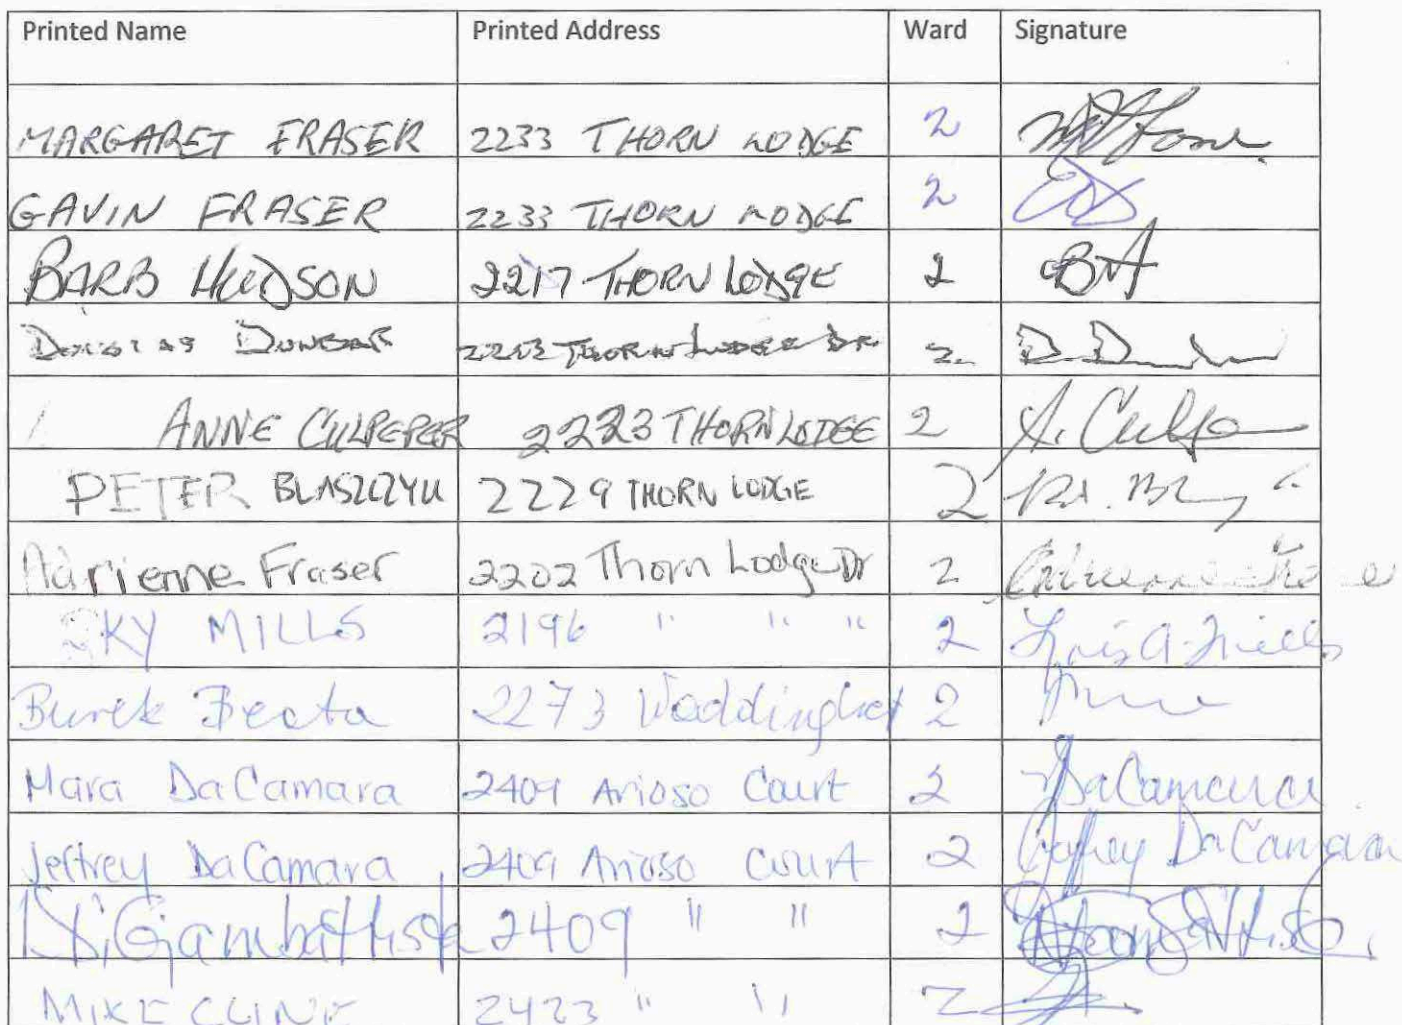 Printed Name Printed Address Ward Signature
MARGARET FRASER 2233 THORN LODGE 2
GAVIN FRASER 2233 THORN LODGE 2
BARB HUDSON 2217 THORN LODGE 2 BH
DOUGLAS DUNBAR THORN LODGE DR 2
ANNE CULPEPER 2223 THORN LODGE 2 A. Culpe
PETER BLASZCZYU 2229 THORN LODGE 2
Adrienne Fraser 2202 Thorn Lodge Dr 2 Adrienne
SKY MILLS 2196 " " " 2 Lois A. Mills
Burek Beata 2273 2
Mara DaCamara 2409 Arioso Court 2 DaCamara
Jeffrey DaCamara 2409 Arioso Court 2 Jeffrey DaCamara
D.Giambattista 2409 " " 2
MIKE CLINE 2423 " " 2